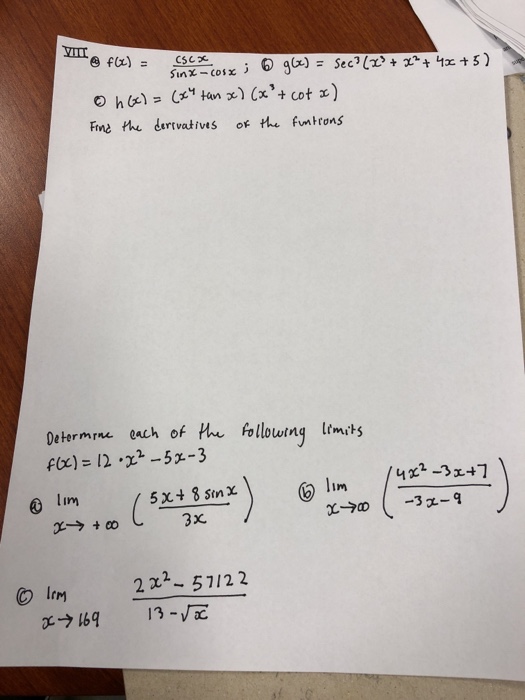 VIII ⓐ f(x) = csc x / sin x - cos x ; ⓑ g(x) = sec³(x³ + x² + 4x + 5)
ⓒ h(x) = (x⁴ tan x) (x³ + cot x)
Find the derivatives of the funtions
Determine each of the following limits
f(x) = 12 · x² - 5x - 3
ⓐ lim x → +∞ (5x + 8 sin x / 3x)
ⓑ lim x → ∞ (4x² - 3x + 7 / -3x - 9)
ⓒ lim x → 169 2x² - 57122 / 13 - √x